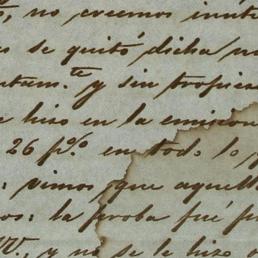 , no creemos inuti
es se quitó dicha m
ntam.te y sin tropies
e hizo en la emision
26 p.o en todo lo
: vimos que aquell
os: la proba fué fu
VV., y no se le hizo